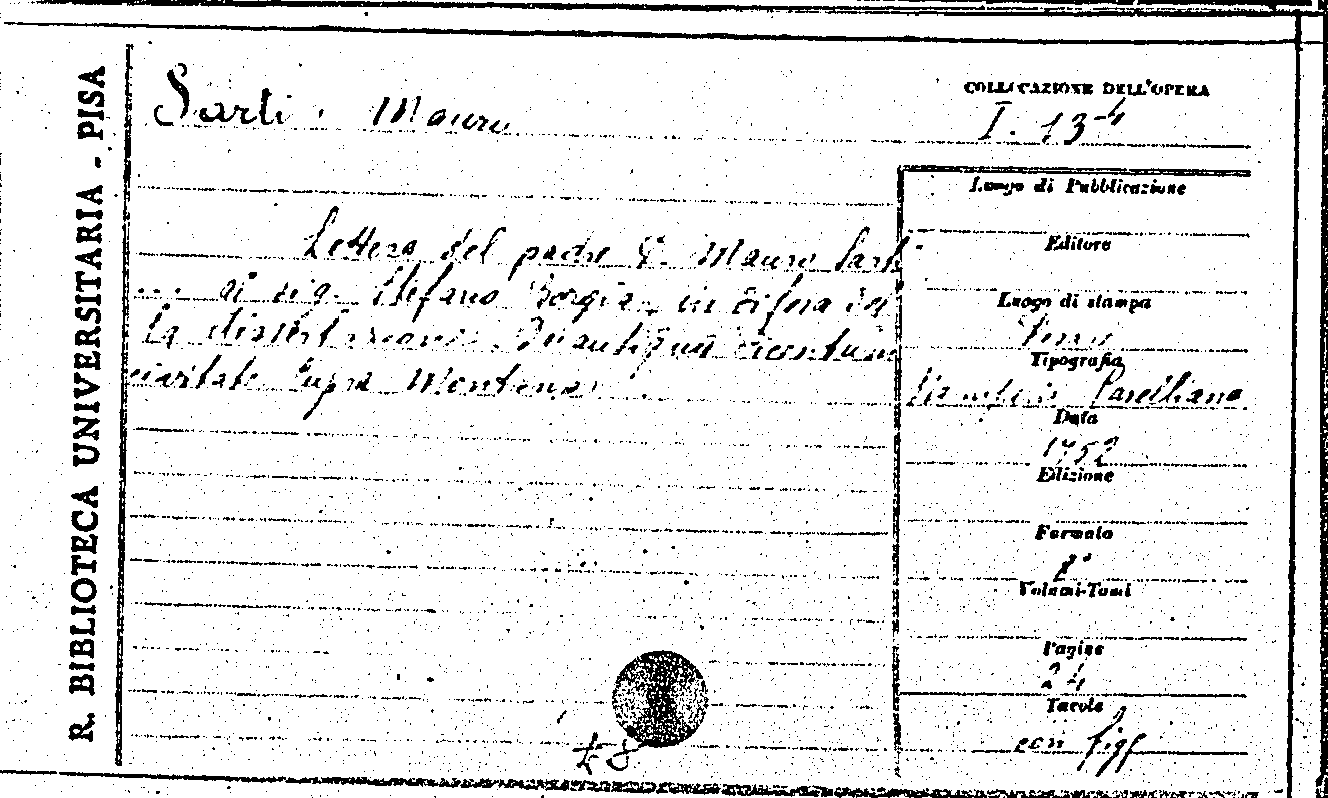 R. BIBLIOTECA UNIVERSITARIA - PISA
Sarti Mauro
COLLOCAZIONE DELL'OPERA
I. 13-4
Lettera del padre D. Mauro Sarti
... al sig. Stefano Borgia in difesa del
la dissertazione: De antiqua
civitate Cupra Montana
Luogo di Pubblicazione
Editore
Luogo di stampa
Tipografia
Data
1752
Edizione
Formato
Volumi-Tomi
Pagine
24
Tavole
con figg